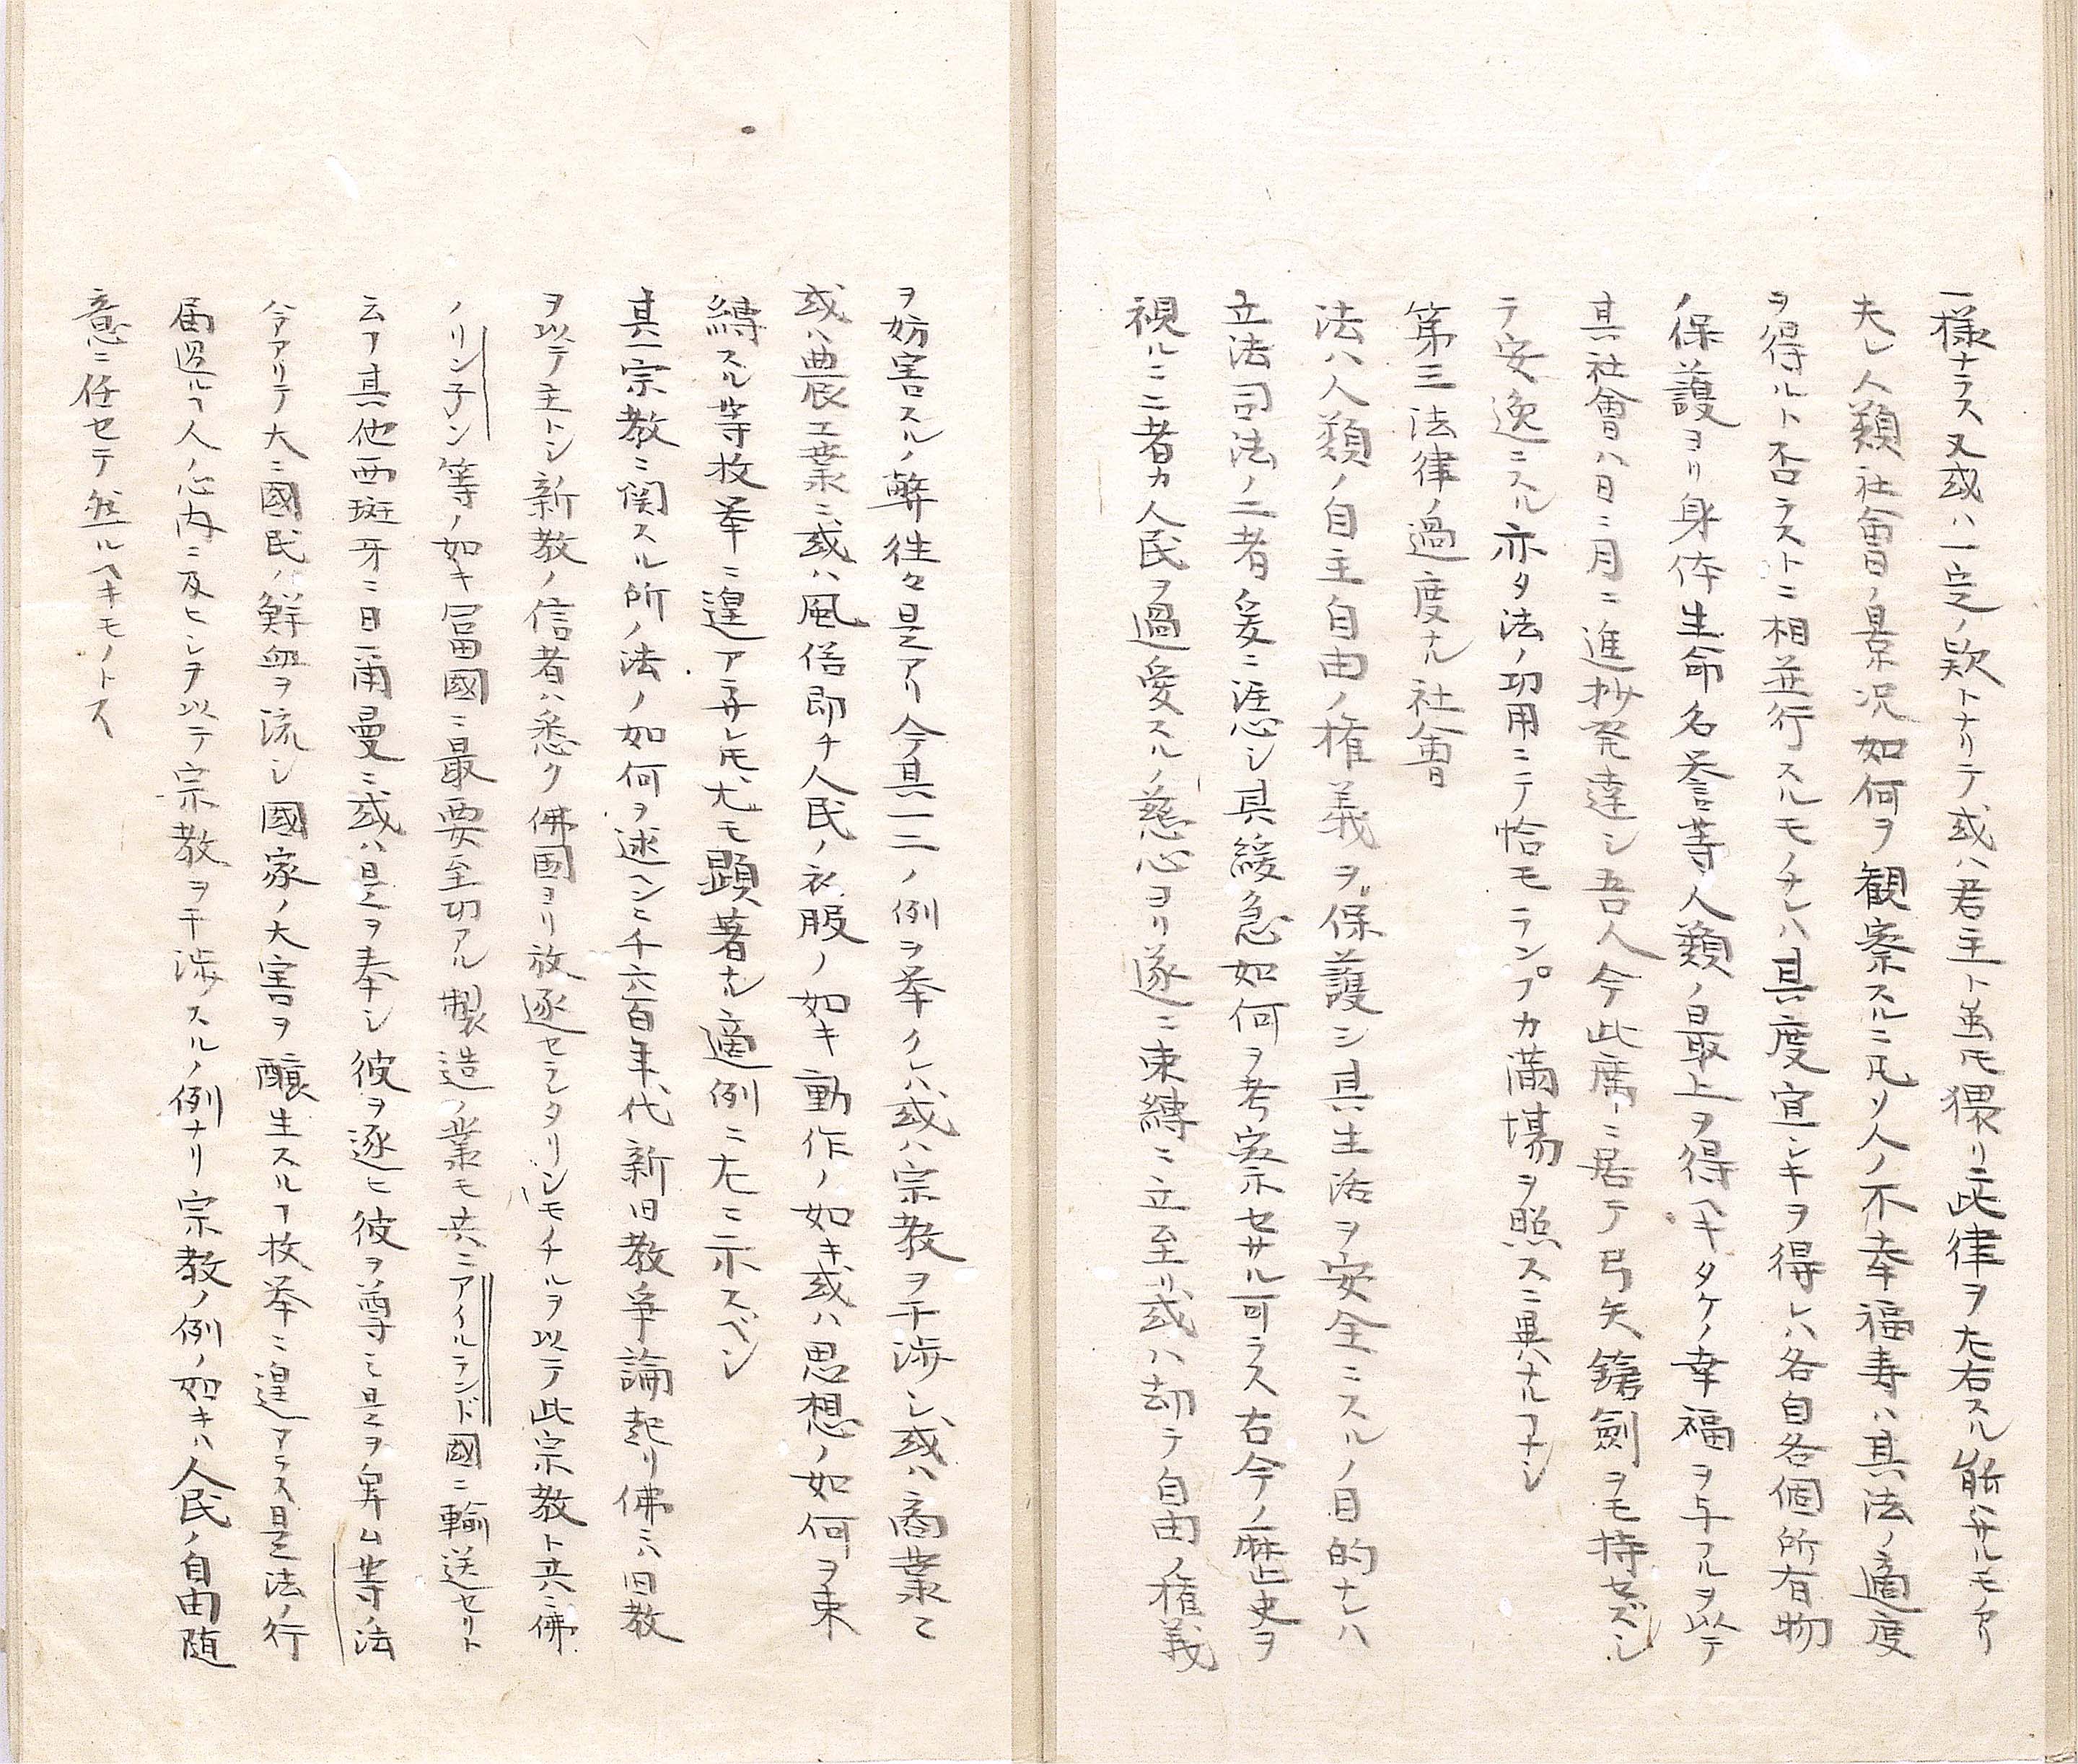 一様ナラス又或ハ一定ノ欵トナリテ或ハ君主ト虽モ猥リニ此律ヲ左右スル能ハサルモアリ
夫レ人類社會ノ景况如何ヲ観察スルニ凡ソ人ノ不幸福寿ハ其法ノ適度
ヲ得ルト否ラストニ相並行スルモノナレハ其度宜シキヲ得レハ各自各個所有物
ノ保護ヨリ身体生命名誉等人類ノ最上ヲ得ヘキタケノ幸福ヲ与フルヲ以テ
其社會ハ日ニ月ニ進抄発達シ吾人今此席ニ居テ弓矢鎗劍ヲモ持セズシ
テ安逸ニスル亦タ法ノ功用ニテ恰モランプカ満場ヲ照スニ異ナルヿナシ
第三法律ノ過度ナル社會
法ハ人類ノ自主自由ノ権義ヲ保護シ其生活ヲ安全ニスルノ目的ナレハ
立法司法ノ二者爰ニ注意シ其緩急如何ヲ考案セサル可ラス古今ノ歴史ヲ
視ルニ二者カ人民ヲ過愛スルノ慈心ヨリ遂ニ束縛ニ立至リ或ハ却テ自由ノ権義
ヲ妨害スルノ弊往々是アリ今其一二ノ例ヲ挙クレハ或ハ宗教ヲ干渉シ或ハ商業ニ
或ハ農工業ニ或ハ風俗即チ人民ノ衣服ノ如キ動作ノ如キ或ハ思想ノ如何ヲ束
縛スル等枚挙ニ遑アラサレ𪜈尤モ顕著ナル適例ニ左ニ示スベシ
其一宗教ニ関スル所ノ法ノ如何ヲ述ヘンニ千六百年代新旧教爭論起リ佛ニハ旧教
ヲ以テ主トシ新教ノ信者ハ悉ク佛國ヨリ放逐セラレタリシモチルヲ以テ此宗教ト共ニ佛
ノリン子ン等ノ如キ冨國ニ最要至切アル製造ノ業モ共ニアイルランド國ニ輸送セリト
云フ其他西班牙ニ日耳曼ニ或ハ是ヲ奉シ彼ヲ逐ヒ彼ヲ尊ミ是ヲ卑ム等ノ法
令アリテ大ニ國民ノ鮮血ヲ流シ國家ノ大害ヲ醸生スルヿ枚挙ニ遑アラス是法ノ行
届過ルヿ人ノ心内ニ及ヒシヲ以テ宗教ヲ干渉スルノ例ナリ宗教ノ例ノ如キハ人民ノ自由随
意ニ任セテ然ルヘキモノトス